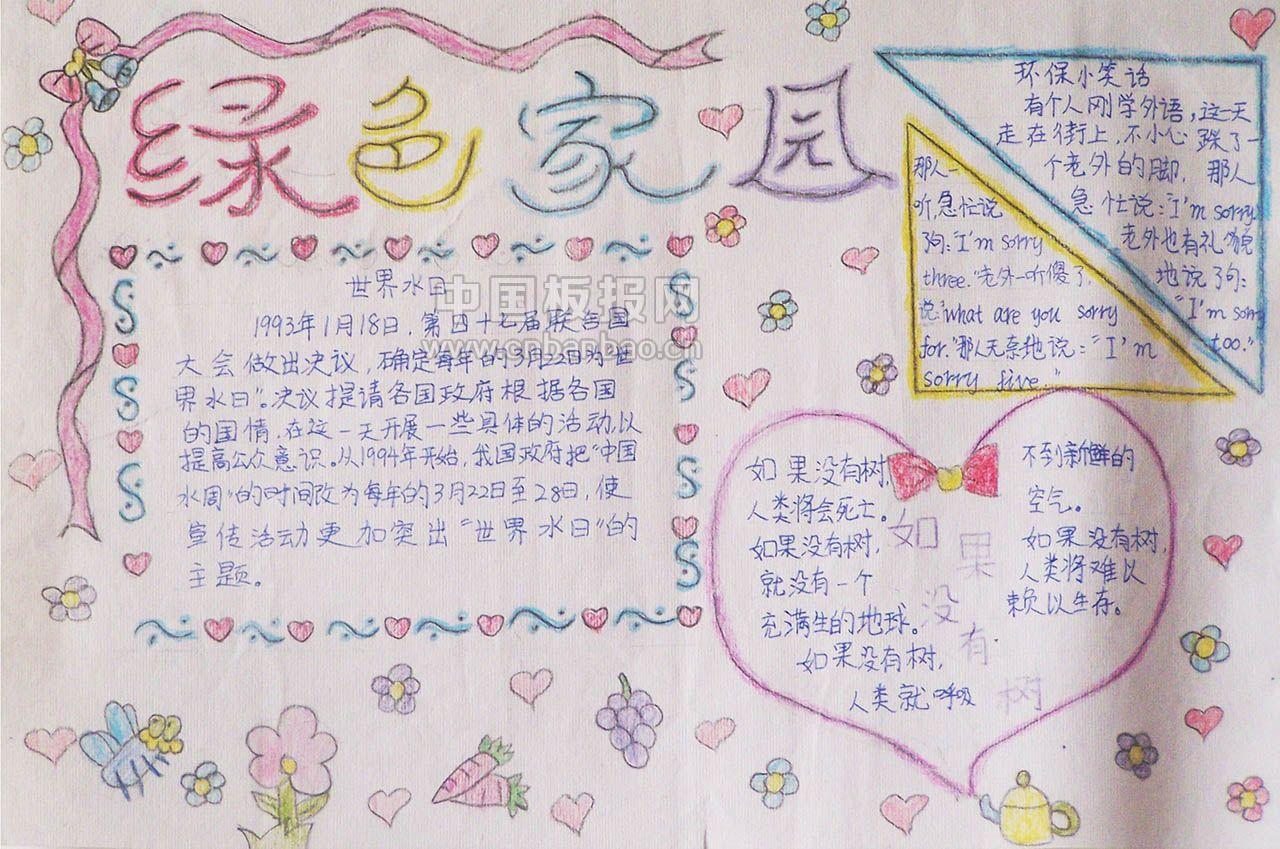 绿色家园
世界水日
1993年1月18日，第四十七届联合国
大会做出决议，确定每年的3月22日为“世
界水日”。决议提请各国政府根据各国
的国情，在这一天开展一些具体的活动，以
提高公众意识。从1994年开始，我国政府把“中国
水周”的时间改为每年的3月22日至28日，使
宣传活动更加突出“世界水日”的
主题。
中国板报网
www.cnbanbao.cn
环保小笑话
有个人刚学外语，这一天
走在街上，不小心踩了一
个老外的脚，那人
急忙说：“I'm sorry
老外也有礼貌
地说了句：
“I'm sorry
too.”
那人一
听，急忙说
了句：“I'm sorry
three.”老外一听傻了，
说：“what are you sorry
for.”那人无奈地说：“I'm
sorry five.”
如果没有树
如果没有树，
人类将会死亡。
如果没有树，
就没有一个
充满生的地球。
如果没有树，
人类就呼吸
不到新鲜的
空气。
如果没有树，
人类将难以
赖以生存。